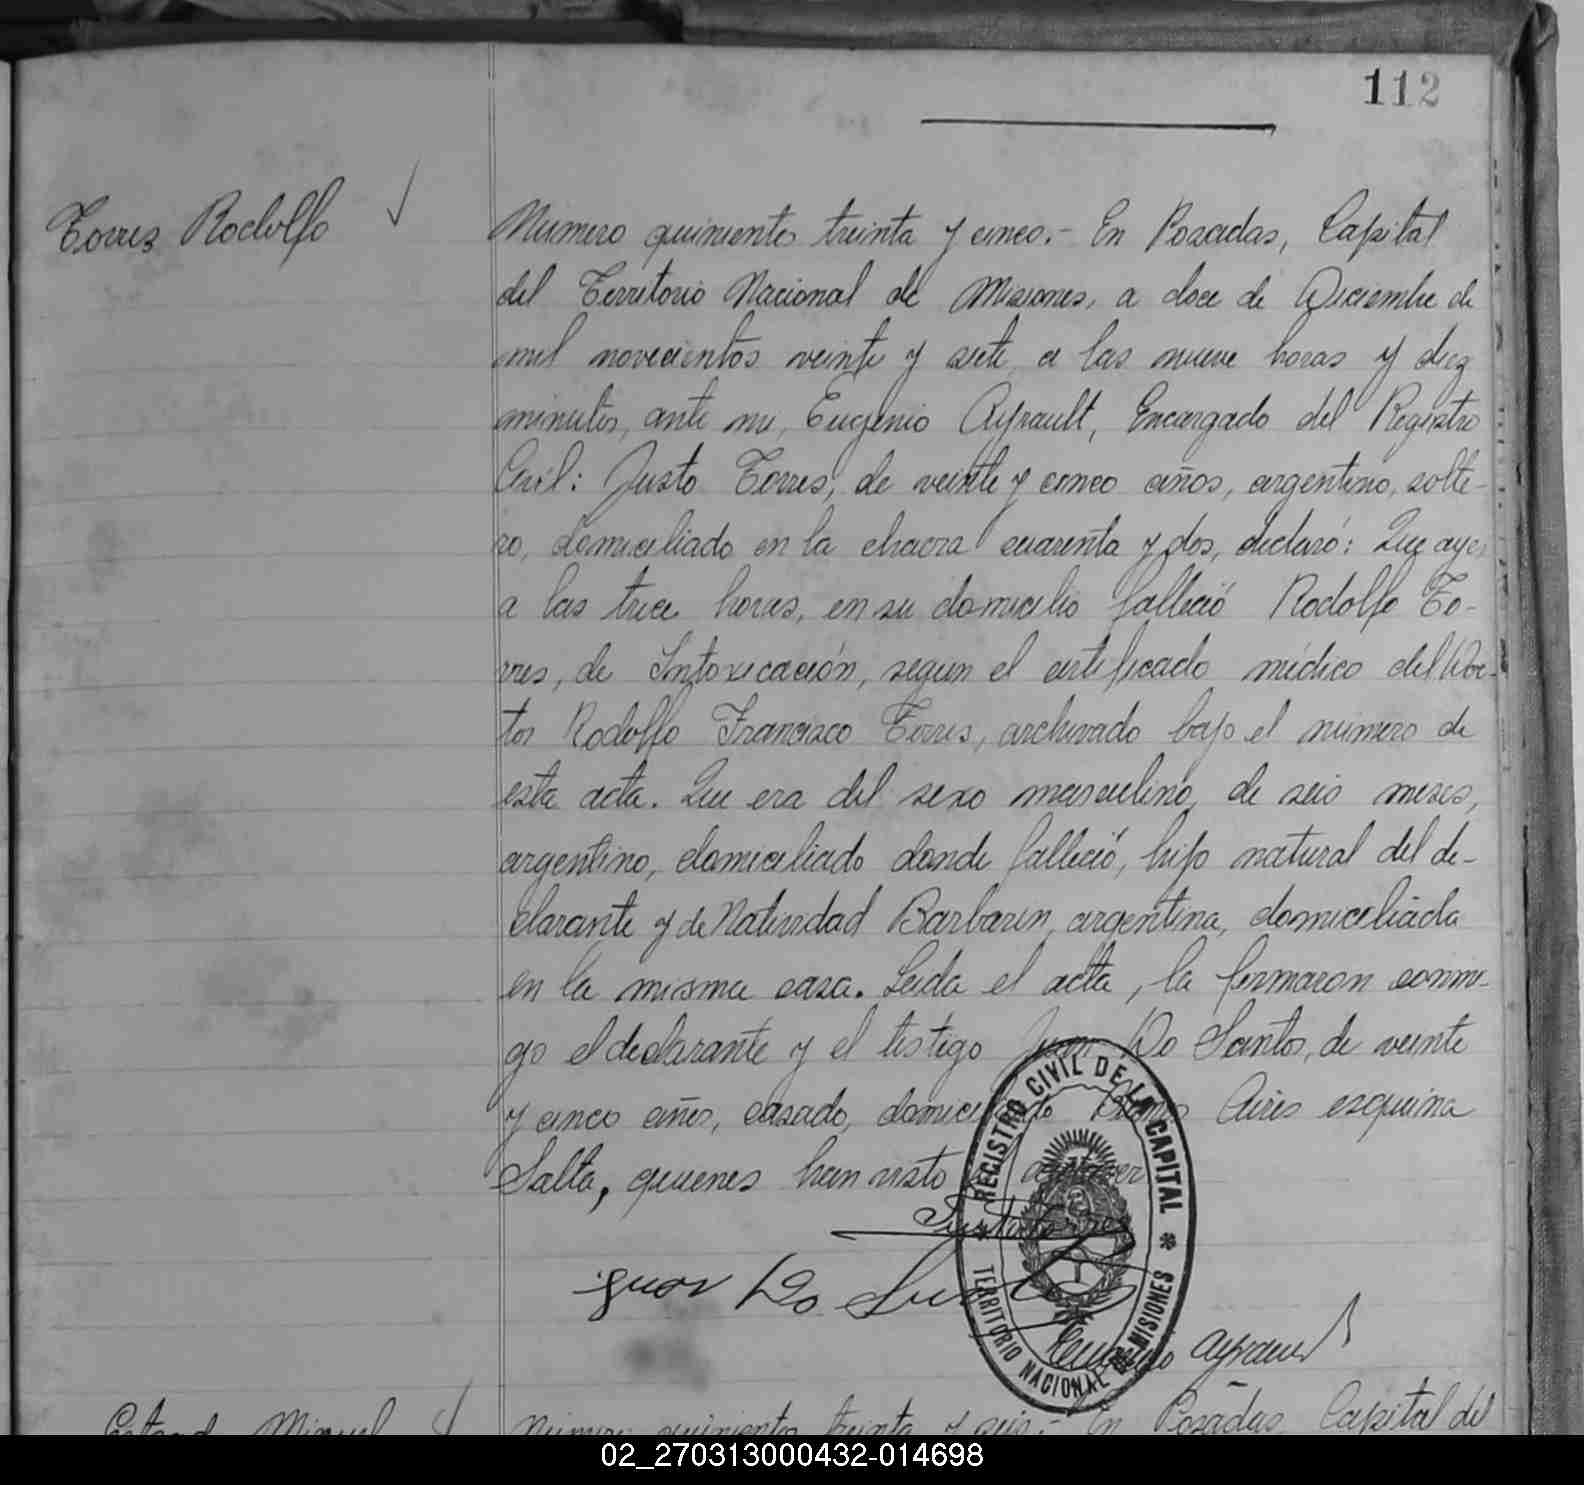 112
Torres Rodolfo
Numero quinientos treinta y cinco.- En Posadas, Capital
del Territorio Nacional de Misiones, a doce de Diciembre de
mil novecientos veinte y siete, a las nueve horas y diez
minutos, ante mi, Eugenio Ayrault, Encargado del Registro
Civil: Justo Torres, de veinte y cinco años, argentino, solte-
ro, domiciliado en la chacra cuarenta y dos, declaró: Que ayer
a las trece horas, en su domicilio falleció Rodolfo To-
rres, de Intoxicación, segun el certificado médico del Doc-
tor Rodolfo Francisco Torres, archivado bajo el número de
esta acta. Que era del sexo masculino, de seis meses,
argentino, domiciliado donde falleció, hijo natural del de-
clarante y de Natividad Barbaren, argentina, domiciliada
en la misma casa. Leida el acta, la firmaron conmi-
go el declarante y el testigo Juan Do Santos, de veinte
y cinco años, casado, domiciliado Buenos Aires esquina
Salta, quienes han visto el cadaver
Justo Torres
Juan Do Santos
Eugenio Ayrault
REGISTRO CIVIL DE LA CAPITAL
TERRITORIO NACIONAL DE MISIONES
Miguel
Número quinientos treinta y seis.- En Posadas, Capital del
02_270313000432-014698